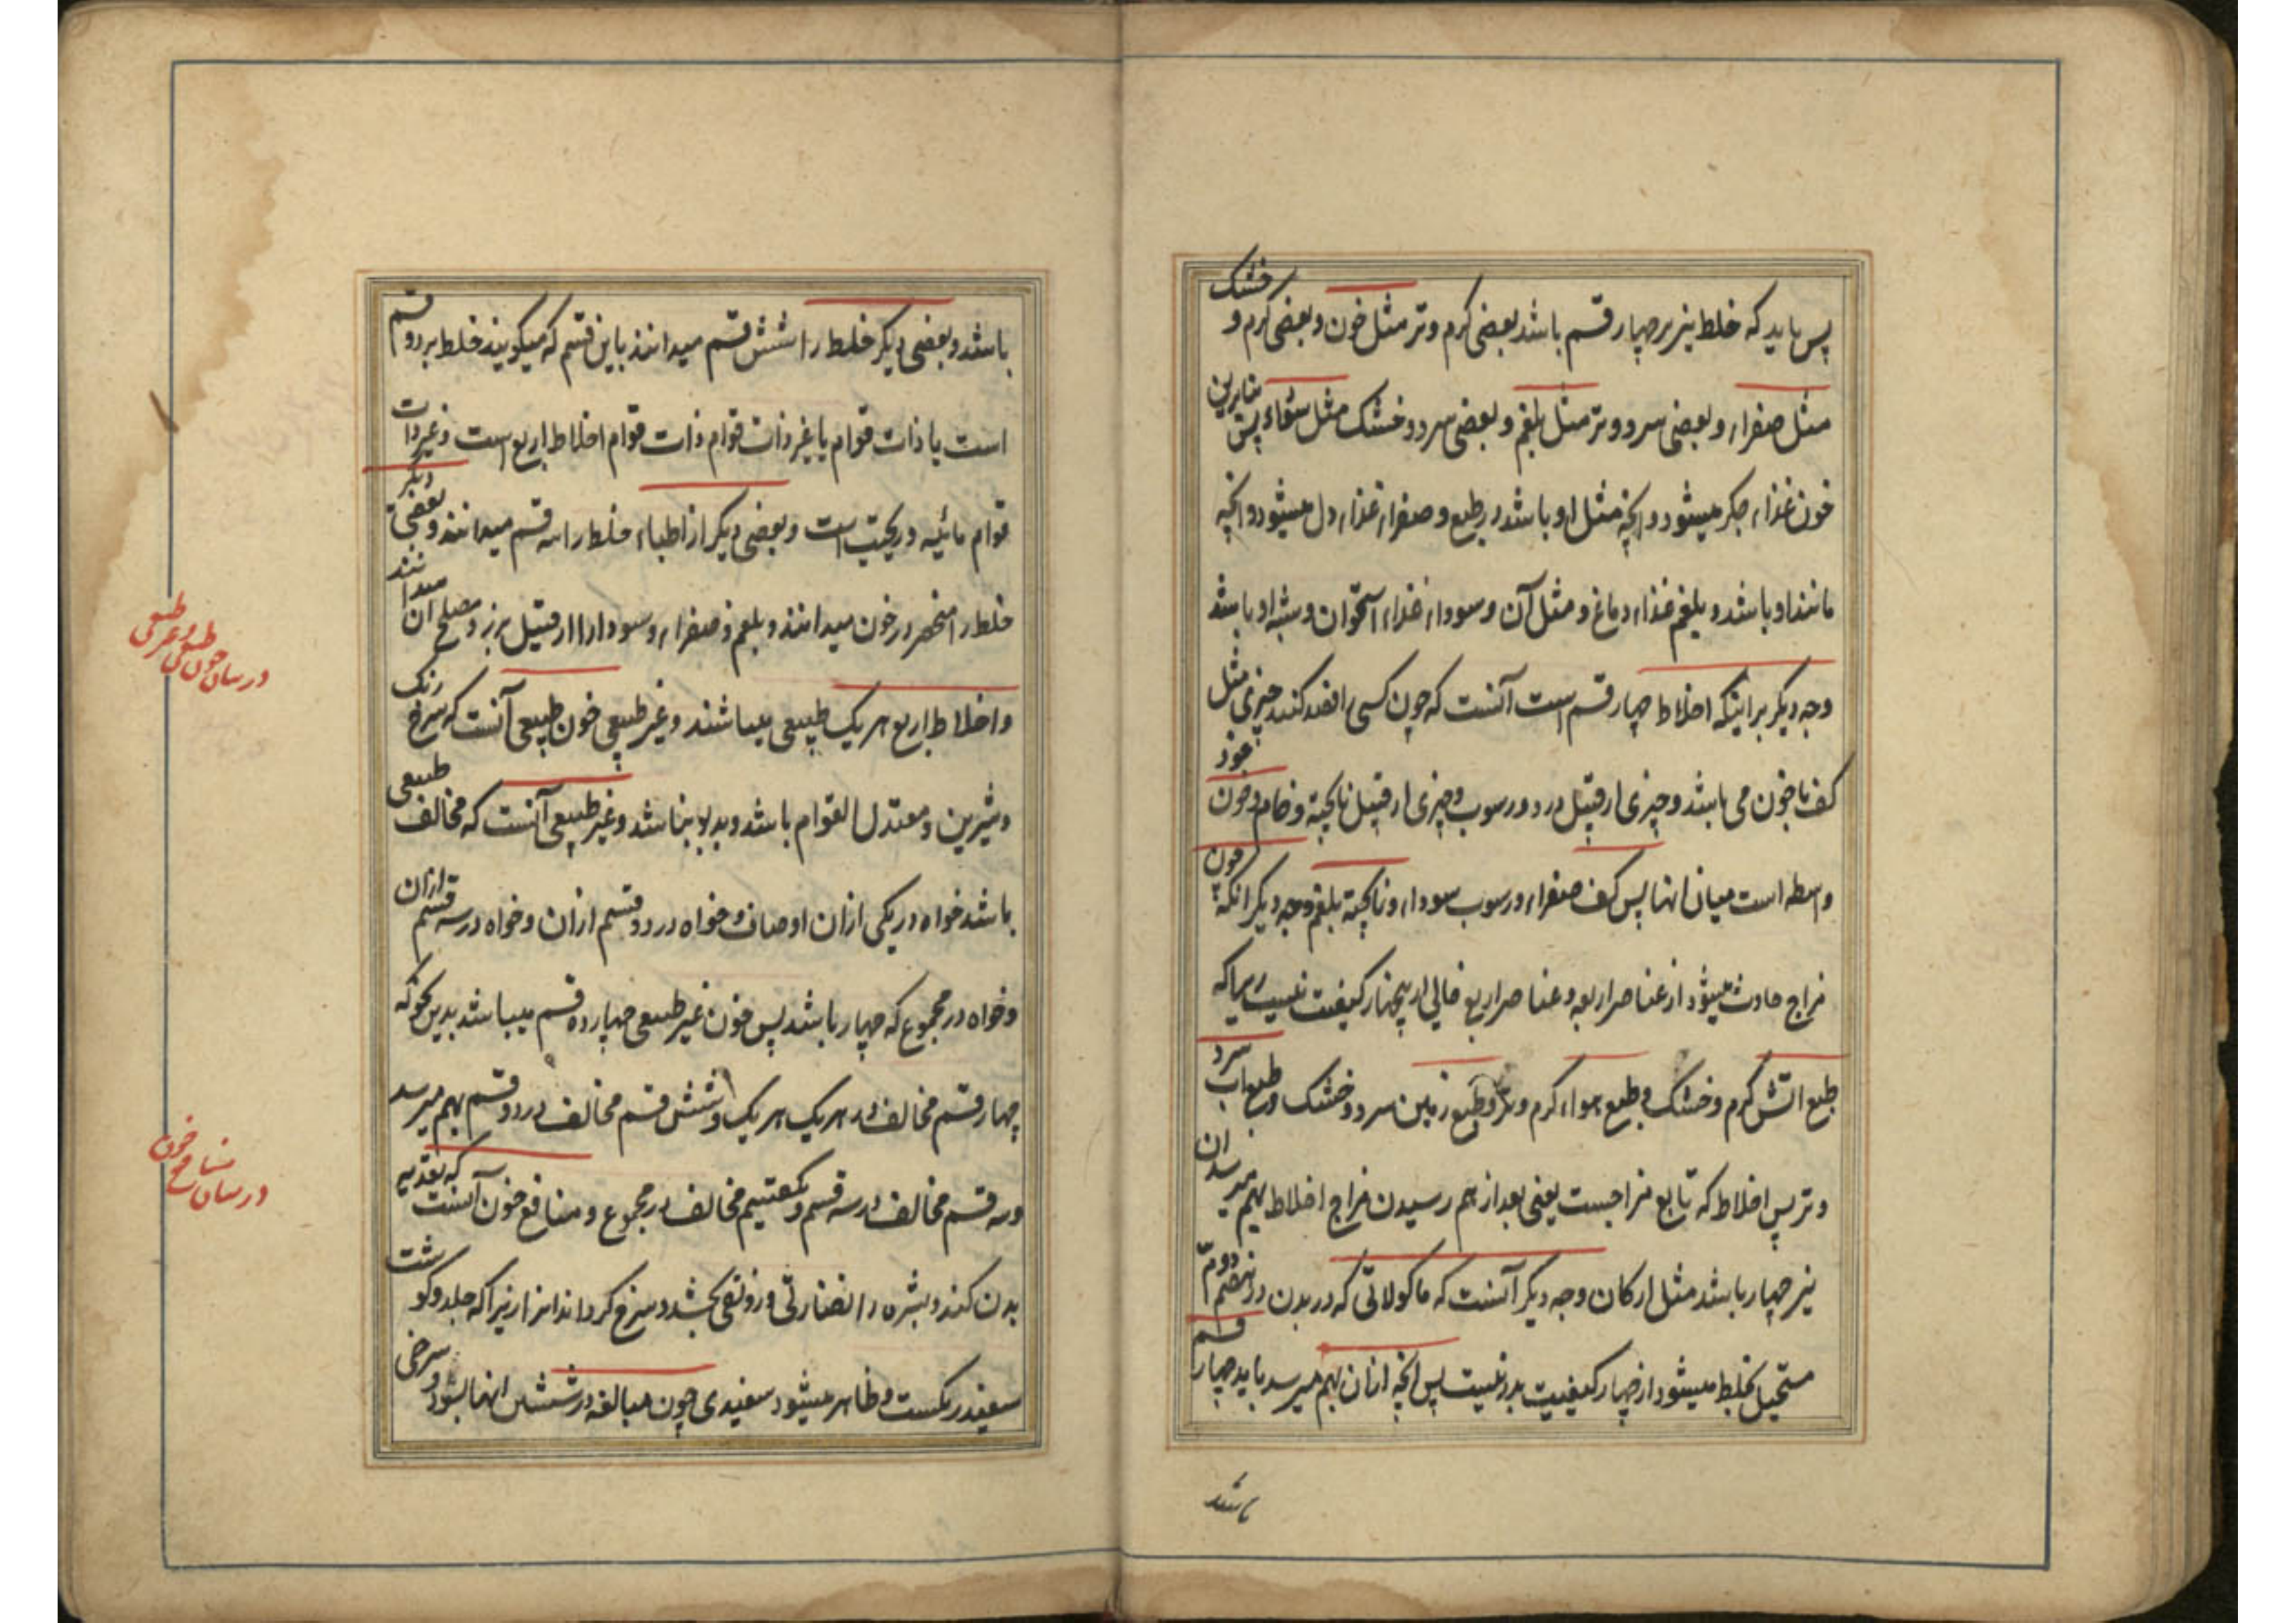 پس باید که خلط نیز بر چهار قسم باشد بعضی کرم و تر مثل خون و بعضی کرم و خشک
مثل صفراء و بعضی سرد و تر مثل بلغم و بعضی سرد و خشک مثل سوداء پس بنابرین
خون غذاء جکر میشود و انچه مثل او باشد در طبع و صفراء غذاء دل میشود و انچه
مانند او باشد و بلغم غذاء دماغ و مثل آن و سوداء غذاء استخوان و شبه او باشد
وجه دیکر بر اینکه اخلاط چهار قسم است آنست که چون کسی را فصد کنند چیزی مثل
کف با خون می باشد و چیزی از قبیل درد و رسوب و چیزی از قبیل ناپخته و خام و خون خود
واسطه است میان انها پس کف صفراء و رسوب سوداء و ناپخته بلغم و وجه دیکر انکه چون
مزاج حادث میشود از عناصر اربعه و عناصر اربع خالی از چهار کیفیت نیست زیرا که
طبع اتش کرم و خشک و طبع هواء کرم و تر و طبع زمین سرد و خشک و طبع اب سرد
و تر پس اخلاط که تابع مزاجست یعنی بعد از بهم رسیدن مزاج اخلاط بهم میرسد ان
نیز چهار باشد مثل ارکان وجه دیکر آنست که ماکولاتی که در بدن در هضم دوم
مستحیل بخلط میشود از چهار کیفیت بدر نیست پس انچه ازان بهم میرسد باید چهار قسم
باشد
باشد و بعضی دیکر خلط را شش قسم میدانند باین قسم که میکویند خلط بر دو قسم
است یا ذات قوام یا غیر ذات قوام ذات قوام اخلاط اربع است و غیر ذات
قوام مائیه و ریحیت است و بعضی دیکر از اطباء خلط را سه قسم میدانند و بعضی دیکر
خلط را منحصر در خون میدانند و بلغم و صفراء و سودا را از قبیل بزر و مصلح ان میدانند
و اخلاط اربع هر یک طبیعی میباشند و غیر طبیعی خون طبیعی آنست که سرخ رنک
و شیرین و معتدل القوام باشد و بد بو نباشد و غیر طبیعی آنست که مخالف طبیعی
باشد خواه در یکی ازان اوصاف و خواه در دو قسم ازان و خواه در سه قسم ازان
و خواه در مجموع که چهار باشد پس خون غیر طبیعی چهارده قسم میباشد بدین نحو که
چهار قسم مخالف در هر یک هر یک و شش قسم مخالف در دو قسم بهم میرسد
و سه قسم مخالف در سه قسم و یکقسم مخالف در مجموع و منافع خون آنست که تغذیه
بدن کند و بشره را نضارتی و رونقی بخشد و سرخ کرداند زیرا که جلد و کوشت
سفید رنکست و ظاهر میشود سفیدی چون مبالغه در شستن انها بشود و سرخی
در بیان خون طبیعی و غیر طبیعی
در بیان منافع خون